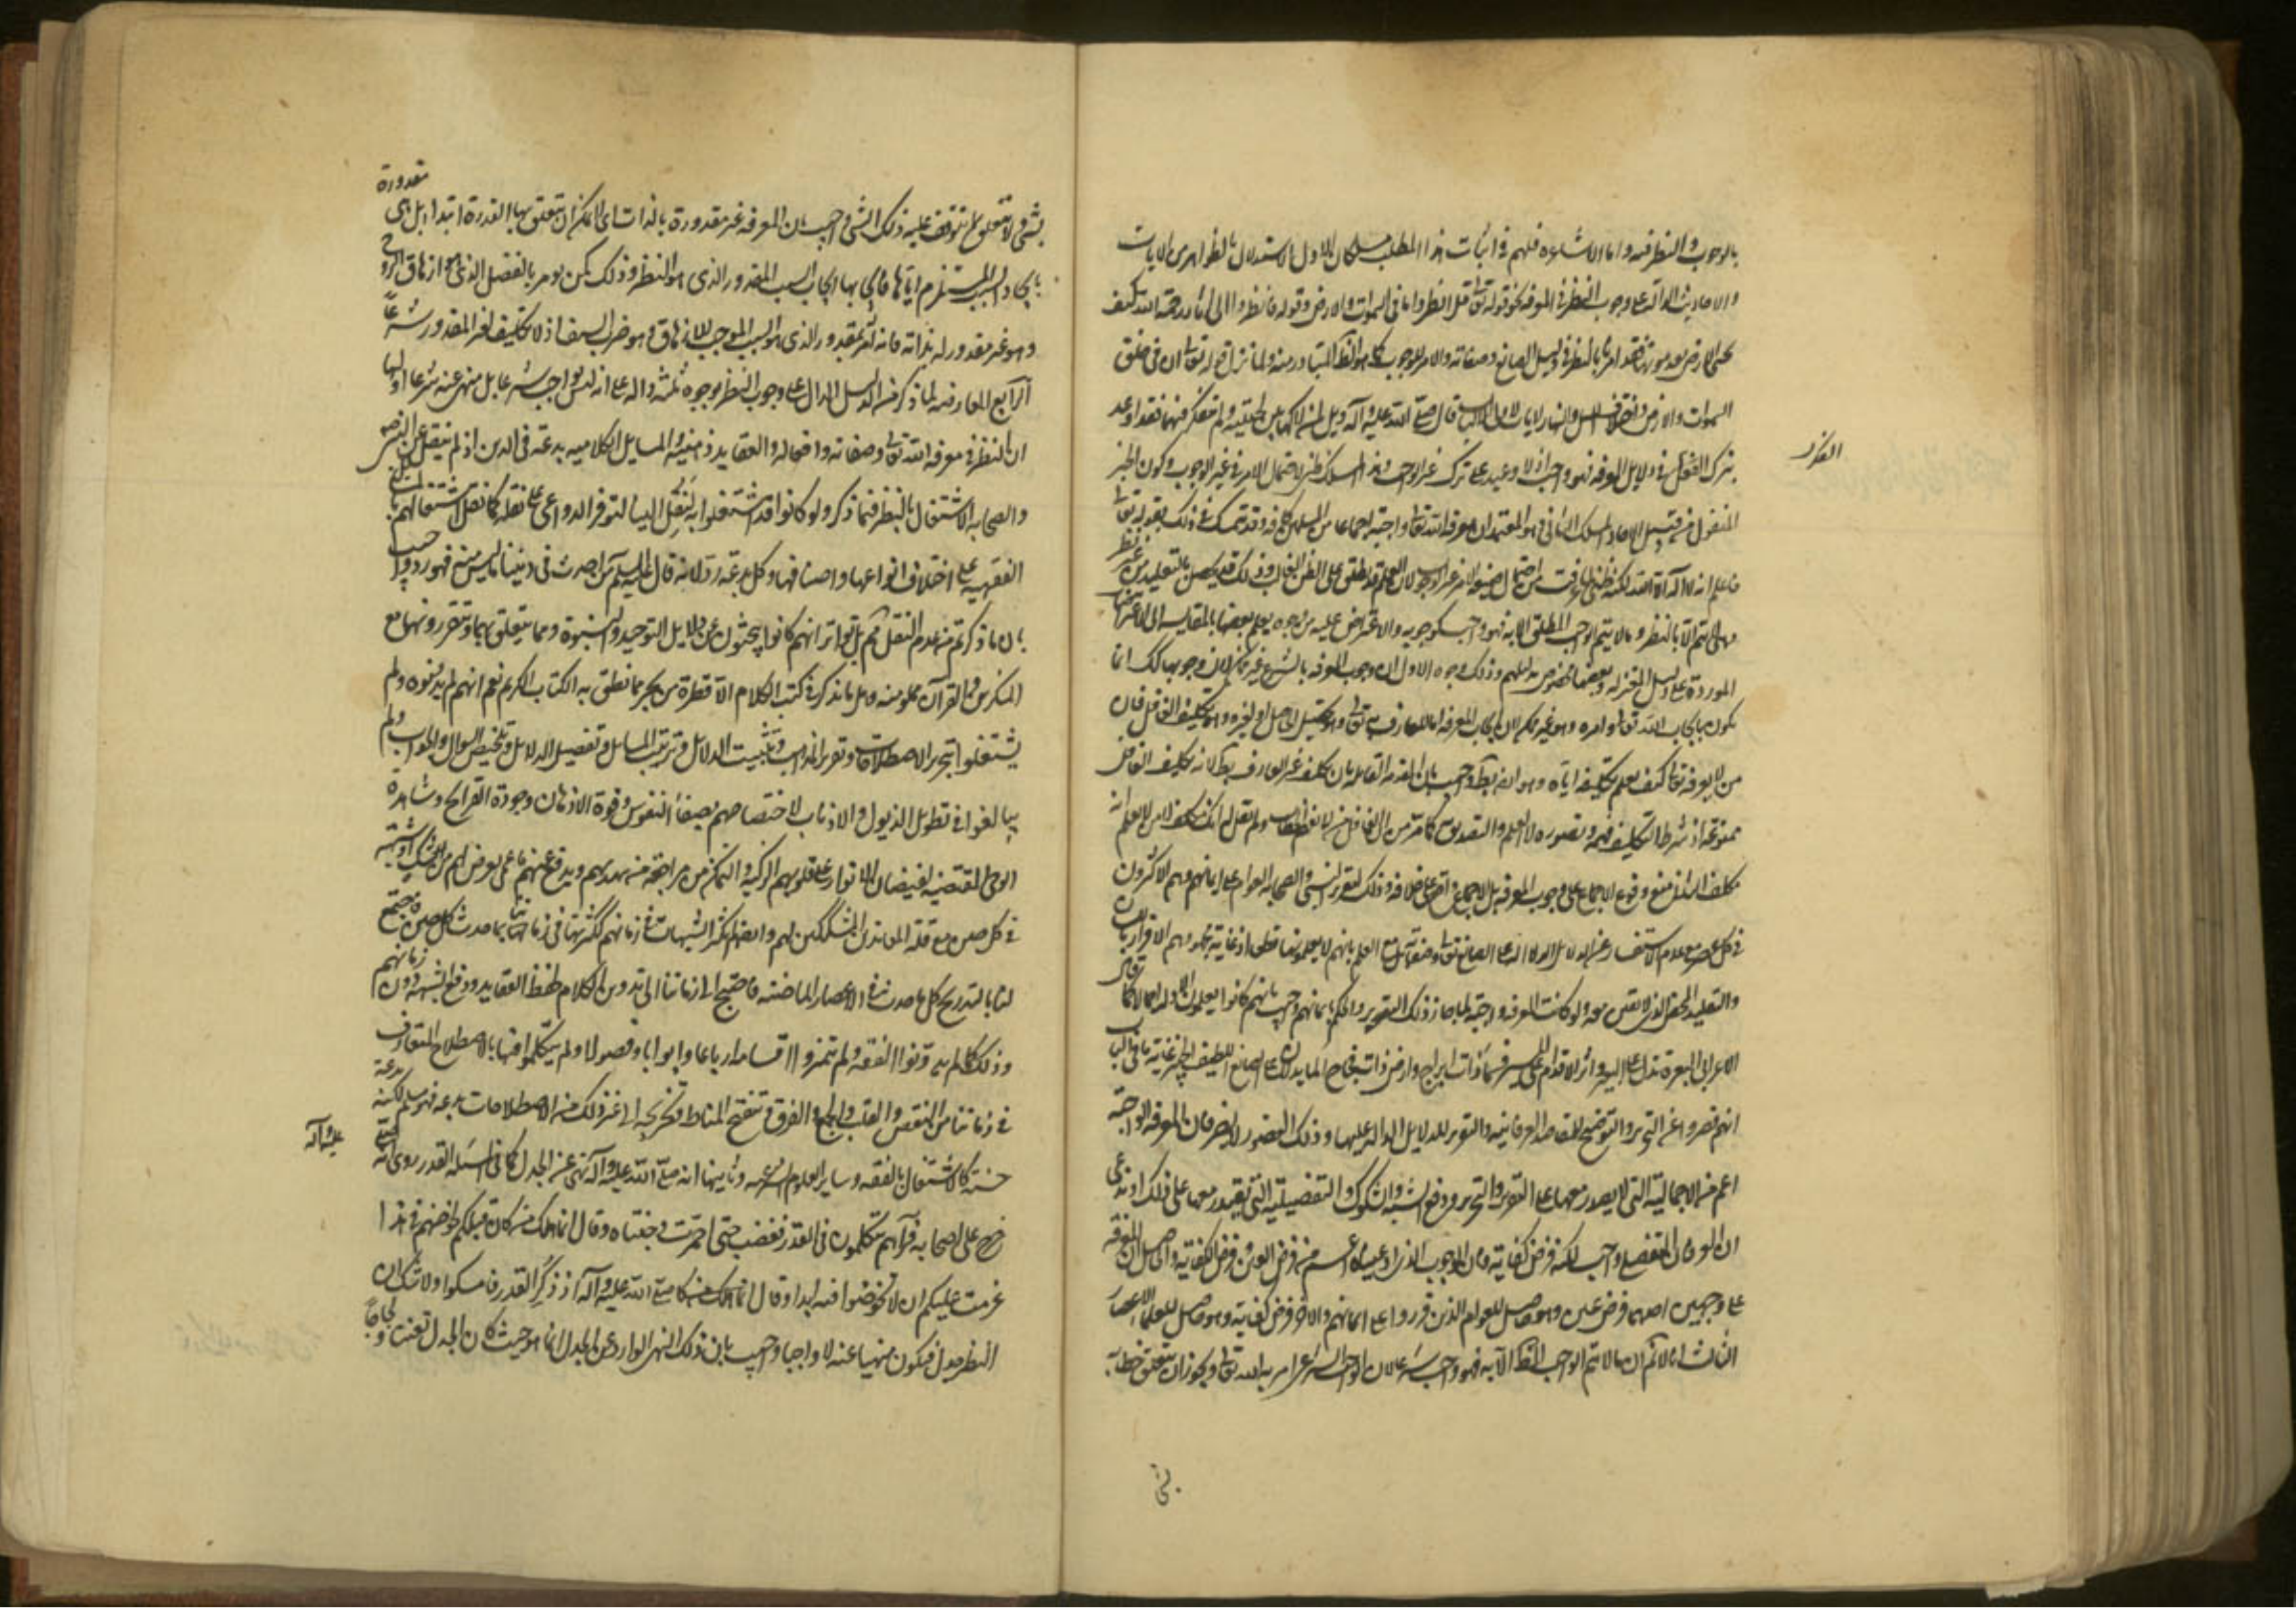 بالوجوب والنظر فيه واما الاشاعرة فلهم في اثبات هذا المطلب مسلكان الاول الاستدلال بالظواهر من الايات
والاحاديث الدالة على وجوب النظر في المعرفة نحو قوله تعالى قل انظروا ماذا في السموات والارض وقوله فانظروا الى اثار رحمة الله كيف
يحيى الارض بعد موتها فقد امر بالنظر في دليل الصانع وصفاته والامر للوجوب كما هو الظاهر المتبادر منه ولما نزل قوله تعالى ان في خلق
السموات والارض واختلاف الليل والنهار لايات لاولى الالباب قال صلى الله عليه وآله ويل لمن لاكها بين لحييه ولم يتفكر فيها فقد اوعد
بترك التفكر في دلايل المعرفة فهو واجب اذ لا وعيد على ترك غير الواجب وهذا المسلك ظنى لاحتمال الامر غير الوجوب وكون الخبر
التفكر
المنقول من قبيل الاحاد المسلك الثانى وهو المعتمد ان معرفة الله تعالى واجبة اجماعا من المسلمين كافة وقد تمسك في ذلك بقوله تعالى
فاعلم انه لا اله الا الله لكنه ظنى لما عرفت من احتمال صيغة الامر غير الوجوب ولان العلم قد يطلق على الظن الغالب وذلك قد يحصل بالتقليد من غير نظر
وهى لا تتم الا بالنظر وما لا يتم الواجب المطلق الا به فهو واجب كوجوبه والاعتراض عليه من وجوه يعلم بعضها بالمقايسة الى الاعتراضات
الموردة على دليل المعتزلة وبعضها مخصوص به
يكون بايجاب الله تعالى وامره وهو غير ممكن لان ايجاب المعرفة اما للعارف به تعالى وهو تحصيل الحاصل او لغيره وهو تكليف الغافل فان
من لا يعرفه تعالى كيف يعلم تكليفه اياه وهو ايضا بط واجيب بان المقدمة القائلة بان تكليف غير العارف بط لانه تكليف الغافل
ممنوعة اذ شرط التكليف فهمه وتصوره لا العلم والتصديق به كما مر من ان الغافل من لا يفهم الخطاب او لم يقل له انك مكلف لا من لا يعلم انه
مكلف الثانى منع وقوع الاجماع على وجوب المعرفة بل الاجماع واقع على خلافه وذلك لتقرير النبى والصحابة العوام على ايمانهم وهم الاكثرون
في كل عصر مع عدم الاستفسار عن الدلايل الدالة على الصانع تعالى وصفاته مع العلم بانهم لا يعلمونها قطعا اذ غاية مجهودهم الاقرار باللسان
والتقليد المحض الذى لا يقين معه ولو كانت المعرفة واجبة لما جاز ذلك التقرير والحكم بايمانهم واجيب بانهم كانوا يعلمون الادلة اجمالا كما قال
الاعرابى البعرة تدل على البعير واثر الاقدام على المسير فسماء ذات ابراج وارض ذات فجاج اما يدلان على الصانع اللطيف الخبير غايته ما في الباب
انهم قصروا عن التحرير والتوضيح للمقاصد العرفانية والتقرير للدلايل الدالة عليها وذلك القصور لا يضر فان المعرفة الواجبة
اعم من الاجمالية التى لا يقدر معها على التقرير والتحرير ودفع الشبه والشكوك والتفصيلية التى يقتدر معها على ذلك او ندعى
ان المعرفة التفصيلية واجبة لكنه فرض كفاية فان الوجوب الذى ادعيناه اعم من فرض العين وفرض الكفاية والحاصل ان المعرفة
على وجهين احدهما فرض عين وهو حاصل للعوام الذين قرروا على ايمانهم والاخر فرض كفاية وهو حاصل للعلماء الاعصار
الثالث انا لا نسلم ان ما لا يتم الواجب المطلق الا به فهو واجب شرعا لان الواجب الشرعى ما امر به الله تعالى ويجوز ان يتعلق خطابه
بشئ
بشئ ولا يتعلق بما يتوقف عليه ذلك الشئ واجيب بان المعرفة غير مقدورة بالذات اى لا يمكن ان تتعلق بها القدرة ابتداء بل هى مقدورة
بايجاد السبب المستلزم اياها فايجابها ايجاب السبب المقدور الذى هو النظر وذلك كمن يؤمر بالقتل الذى هو ازهاق الروح
وهو غير مقدور له بذاته فانه امر بمقدوره الذى هو السبب الموجب للازهاق وهو ضرب السيف اذ لا تكليف بغير المقدور شرعا
الرابع المعارضة لما ذكر من الدليل الدال على وجوب النظر بوجوه ثلثة دالة على انه ليس بواجب شرعا بل منهى عنه شرعا اولها
ان النظر في معرفة الله تعالى وصفاته وافعاله والعقايد الدينية والمسايل الكلامية بدعة في الدين اذ لم ينقل عن النبى
والصحابة الاشتغال بالنظر فيما ذكر ولو كانوا قد اشتغلوا به لنقل الينا لتوفر الدواعى على نقله كما نقل اشتغالهم بالمسايل
الفقهية على اختلاف انواعها واصنافها وكل بدعة رد لانه قال عليه السلام من احدث في ديننا ما ليس منه فهو رد واجيب
بان ما ذكرتم من عدم النقل ثم بل تواتر انهم كانوا يبحثون عن دلايل التوحيد والنبوة وما يتعلق بهما ويقررونها مع
المنكرين والقرآن مملو منه وهل ما يذكر في كتب الكلام الا قطرة من بحر مما نطق به الكتاب الكريم نعم انهم لم يدونوه ولم
يشتغلوا بتحرير الاصطلاحات وتقرير المذاهب وتثبيت الدلايل وترتيب المسايل وتفصيل الدلايل وتلخيص السوال والجواب ولم
يبالغوا في تطويل الذيول والاذناب لاختصاصهم بصفاء النفوس وقوة الاذهان وجودة القرايح ومشاهدة
الوحى المقتضية لفيضان الانوار على قلوبهم الزكية والتمكن من مراجعة من يهديهم ويدفع عنهم ما عسى يعرض لهم من شك او شبهة
في كل حين مع قلة المعاندين المشككين لهم ولم تكثر الشبهات في زمانهم كثرتها في زماننا بما حدث في كل حين فاجتمع
لنا بالتدريج كل ما حدث في الاعصار الماضية فاحتيج في زماننا الى تدوين الكلام لحفظ العقايد ودفع الشبه دون زمانهم
وذلك كما لم يدونوا الفقه ولم يميزوا اقسامه ارباعا وابوابا وفصولا ولم يتكلموا فيها بالاصطلاح المتعارف
في زماننا من النقض والقلب والجمع والفرق وتنقيح المناط وتخريجه الى غير ذلك من الاصطلاحات بدعة فهو مسلم لكنه بدعة
حسنة كالاشتغال بالفقه وساير العلوم الشرعية وثانيها انه صلى الله عليه وآله نهى عن الجدل كما في مسئلة القدر روى انه صلى
عليه وآله
خرج على اصحابه فرآهم يتكلمون في القدر فغضب حتى احمرت وجنتاه وقال انما هلك من كان قبلكم لخوضهم في هذا
عزمت عليكم ان لا تخوضوا فيه ابدا وقال صلى الله عليه وآله اذ ذكر القدر فامسكوا ولا شك ان
النظر جدل فيكون منهيا عنه لا واجبا واجيب بان ذلك النهى الوارد عن الجدل انما هو حيث كان الجدل تعنتا ولجاجا